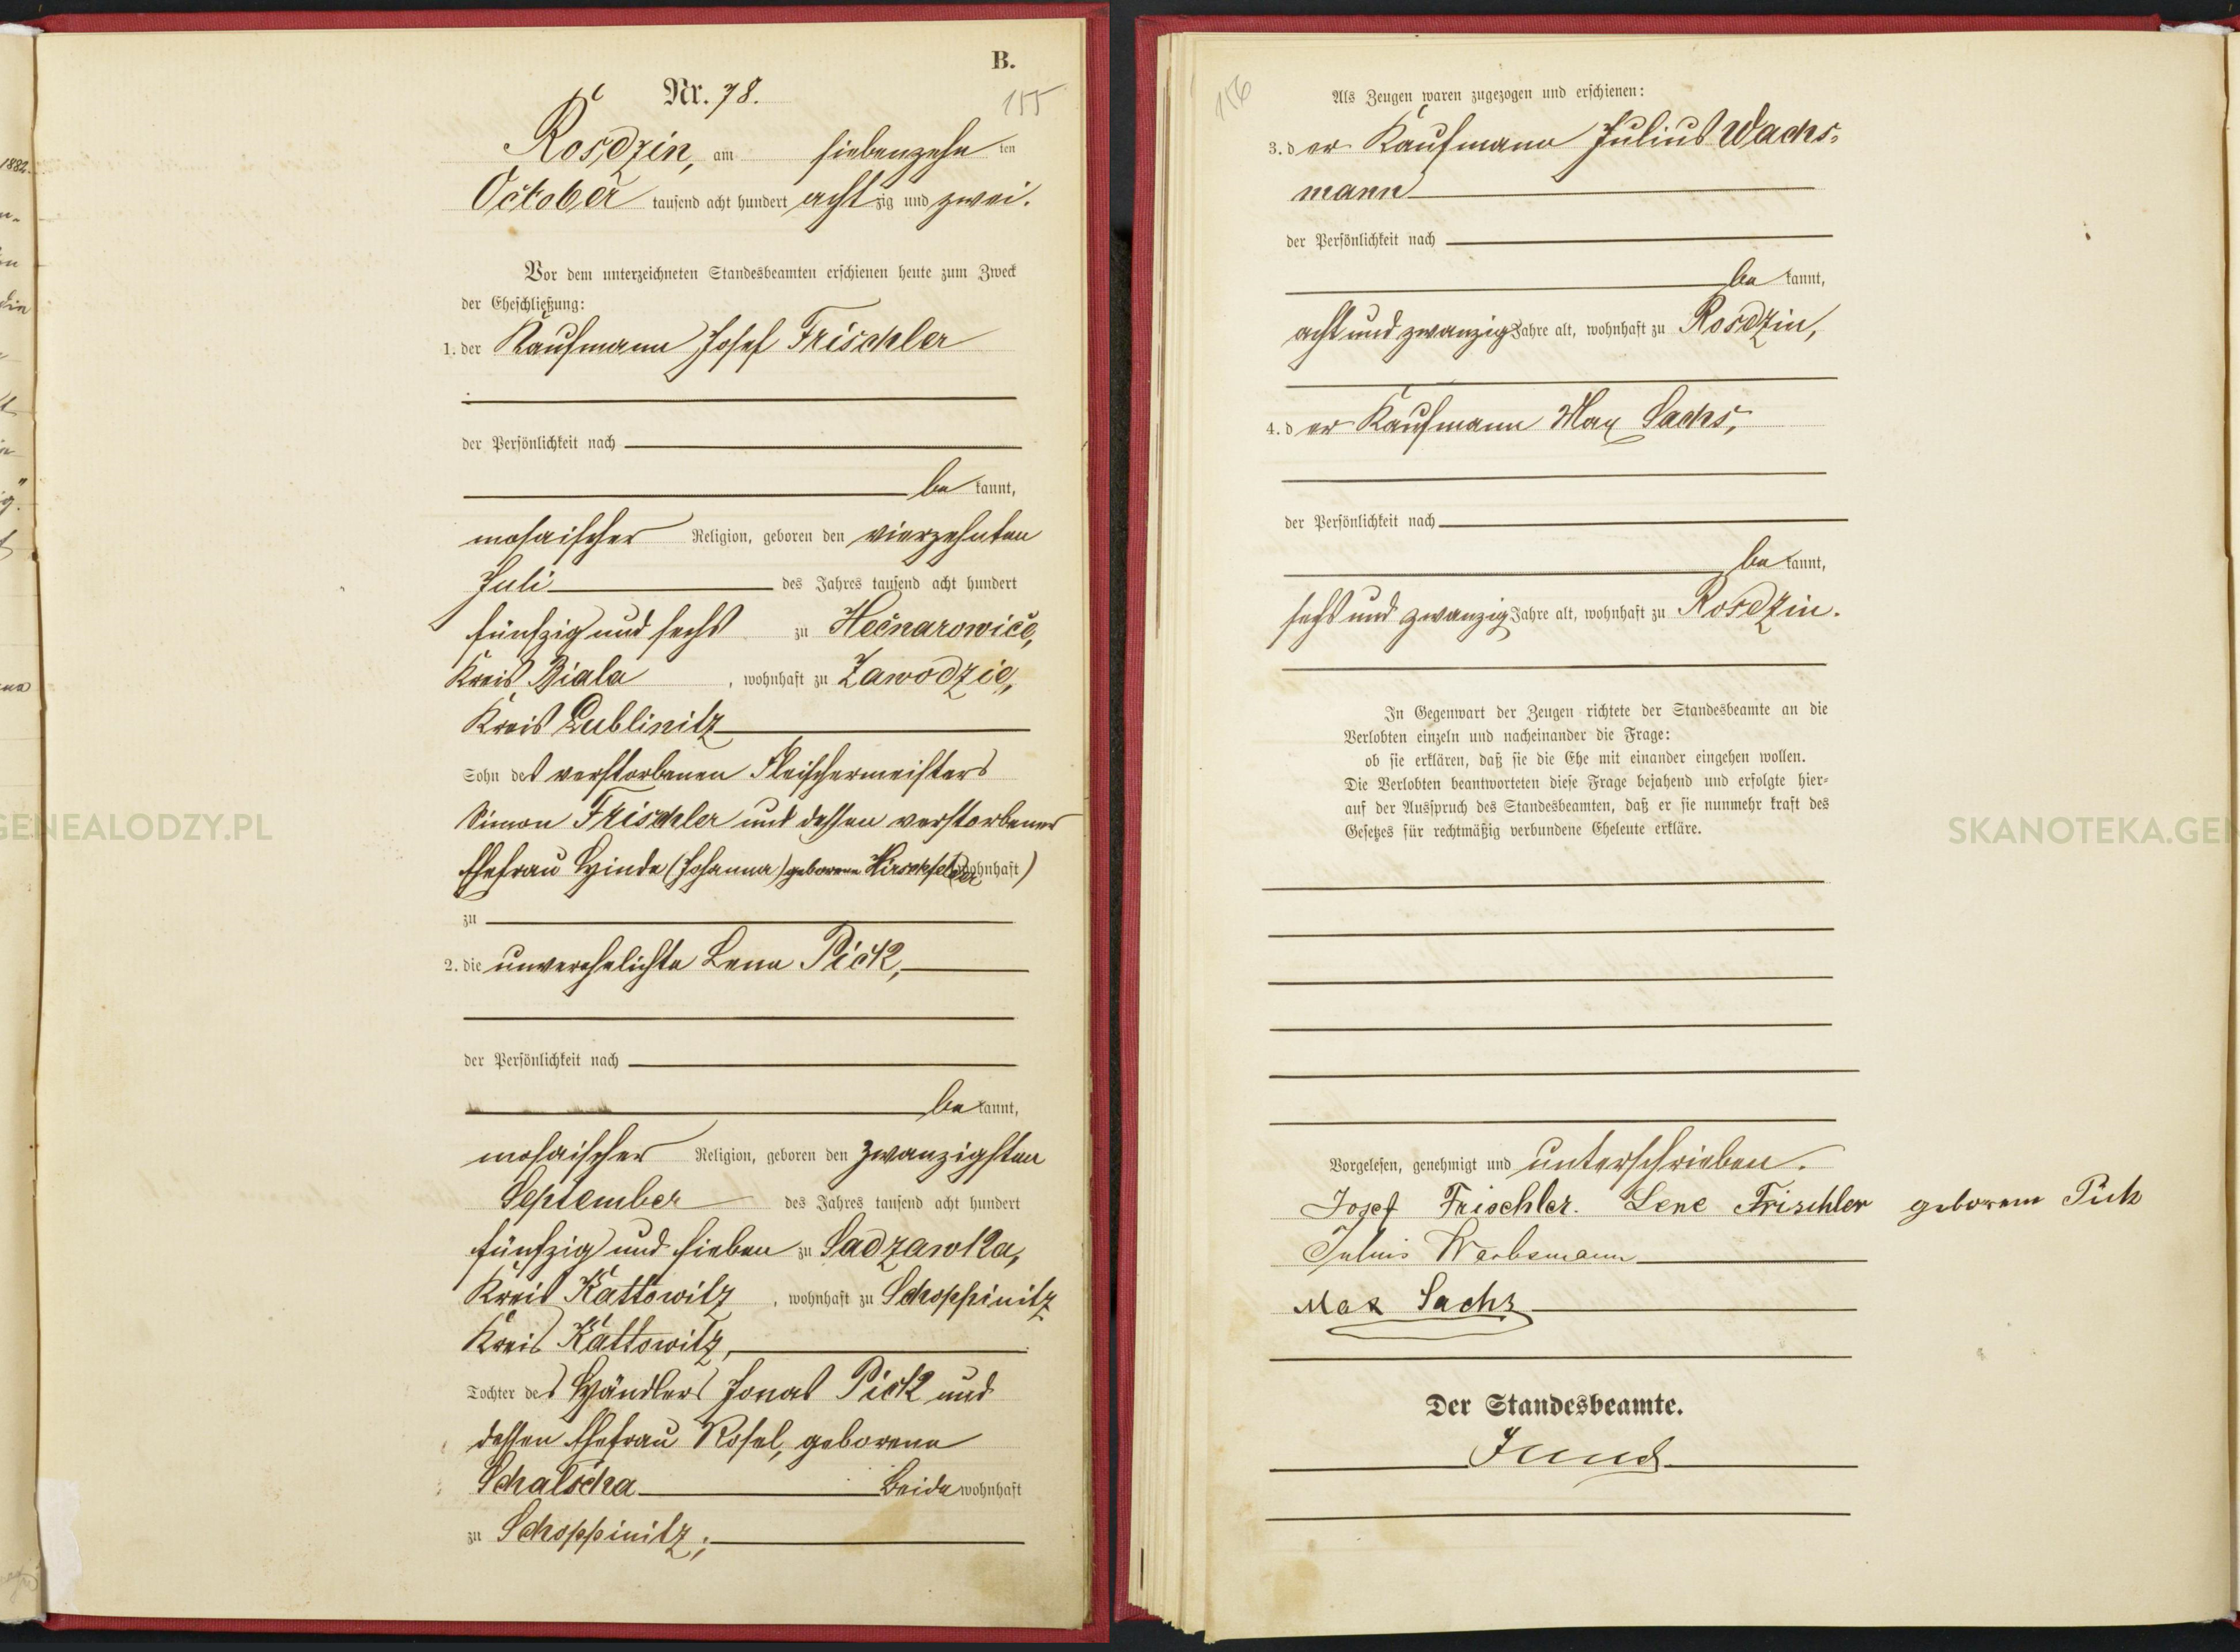 B.
Nr. 78.
155
Rosdzin, am siebenzehn ten
October tausend acht hundert achtzig und zwei.
Vor dem unterzeichneten Standesbeamten erschienen heute zum Zweck
der Eheschließung:
1. der Kaufmann Josef Frischler
der Persönlichkeit nach
be kannt,
mosaischer Religion, geboren den vierzehnten
Juli des Jahres tausend acht hundert
fünfzig und sechs zu Hecnarowice,
Kreis Biala, wohnhaft zu Zawodzie,
Kreis Lublinitz
Sohn des verstorbenen Fleischermeisters
Simon Frischler und dessen verstorbener
Ehefrau Hinde (Johanna) geborene Hirschfelder (wohnhaft)
zu
2. die unverehelichte Lene Pick,
der Persönlichkeit nach
be kannt,
mosaischer Religion, geboren den zwanzigsten
September des Jahres tausend acht hundert
fünfzig und sieben zu Sadzawka,
Kreis Kattowitz, wohnhaft zu Schoppinitz
Kreis Kattowitz,
Tochter des Händlers Jonas Pick und
dessen Ehefrau Rosel, geborene
Schalscha beide wohnhaft
zu Schoppinitz;
156
Als Zeugen waren zugezogen und erschienen:
3. der Kaufmann Julius Wachs-
mann
der Persönlichkeit nach
be kannt,
acht und zwanzig Jahre alt, wohnhaft zu Rosdzin,
4. der Kaufmann Max Sachs,
der Persönlichkeit nach
be kannt,
sechs und zwanzig Jahre alt, wohnhaft zu Rosdzin.
In Gegenwart der Zeugen richtete der Standesbeamte an die
Verlobten einzeln und nacheinander die Frage:
ob sie erklären, daß sie die Ehe mit einander eingehen wollen.
Die Verlobten beantworteten diese Frage bejahend und erfolgte hier-
auf der Ausspruch des Standesbeamten, daß er sie nunmehr kraft des
Gesetzes für rechtmäßig verbundene Eheleute erkläre.
Vorgelesen, genehmigt und unterschrieben.
Josef Frischler. Lene Frischler geborene Pick
Julius Wachsmann
Max Sachs
Der Standesbeamte.
1882.
GENEALODZY.PL
SKANOTEKA.GEN